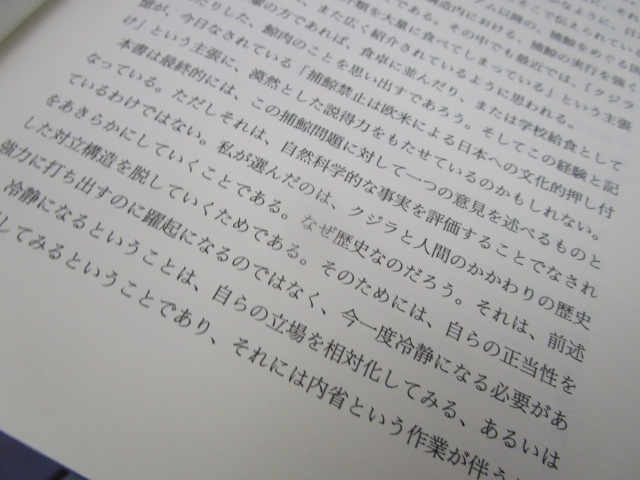 かなように、日
そこで伝えられてい
ダム以降の、捕鯨をめぐる国
構造内における、捕鯨の実行を強く
である。その中でも最近では、「クジラ
類を大量に食べてしまっている」という主張
、また広く紹介されているように思われる。
の方であれば、食卓に並んだり、または学校給食として
たりした、鯨肉のことを思い出すであろう。そしてこの経験と記
憶が、今日なされている「捕鯨禁止は欧米による日本への文化的押し付
け」という主張に、漠然とした説得力をもたせているのかもしれない。
本書は最終的には、この捕鯨問題に対して一つの意見を述べるものと
なっている。ただしそれは、自然科学的な事実を評価することでなされ
ているわけではない。私が選んだのは、クジラと人間のかかわりの歴史
をあきらかにしていくことである。なぜ歴史なのだろう。それは、前述
した対立構造を脱していくためである。そのためには、自らの正当性を
強力に打ち出すのに躍起になるのではなく、今一度冷静になる必要があ
冷静になるということは、自らの立場を相対化してみる、あるいは
してみるということであり、それには内省という作業が伴う